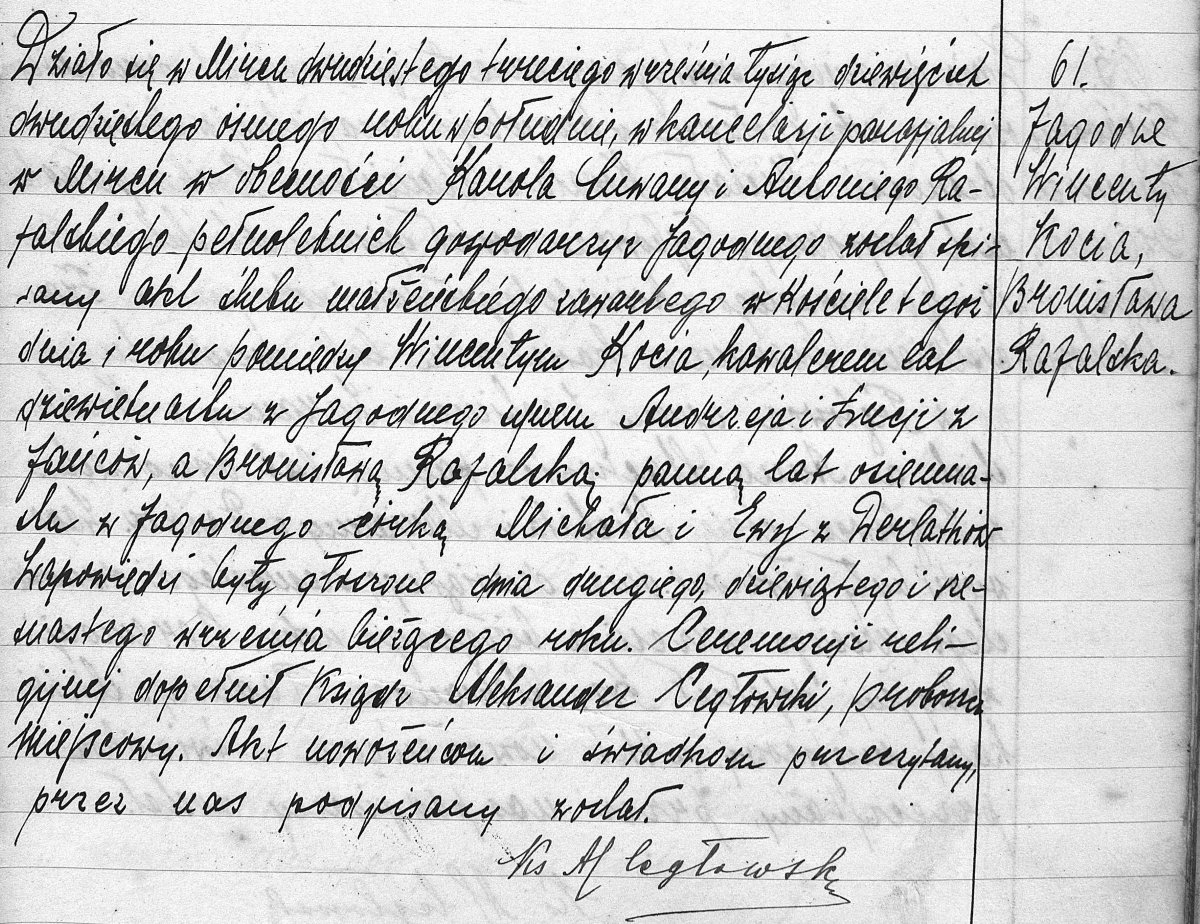 Działo się w Mircu dwudziestego trzeciego września tysiąc dziewięćset
dwudziestego ósmego roku w południe, w kancelarji parafjalnej
w Mircu w obecności Karola i Antoniego Ra-
falskiego pełnoletnich gospodarzy z Jagodnego został spi-
sany akt ślubu małżeńskiego zawartego w Kościele tegoż
dnia i roku pomiędzy Wincentym Kocia, kawalerem lat
dziewiętnastu z Jagodnego synem Andrzeja i Łucji z
Jańców, a Bronisławą Rafalską, panną lat osiemna-
stu z Jagodnego córką Michała i Ewy z Derlatków
Zapowiedzi były głoszone dnia drugiego, dziewiątego i sze-
snastego września bieżącego roku. Ceremonji reli-
gijnej dopełnił Ksiądz Aleksander Cegłowski, proboszcz
miejscowy. Akt nowożeńcom i świadkom przeczytany,
przez nas podpisany został.
Ks Al Cegłowski
61.
Jagodne
Wincenty
Kocia,
Bronisława
Rafalska.